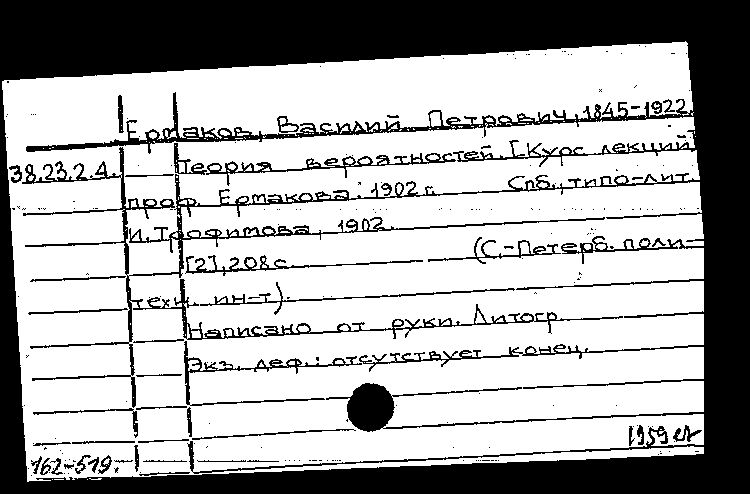 Ермаков, Василий Петрович, 1845-1922.
38.23.2.4. Теория вероятностей. [Курс лекций]
проф. Ермакова: 1902 г. Спб., типо-лит.
И. Трофимова, 1902.
[2], 208 с. (С.-Петерб. поли-
техн. ин-т).
Написано от руки. Литогр.
Экз. деф.: отсутствует конец.
1959
162-519.